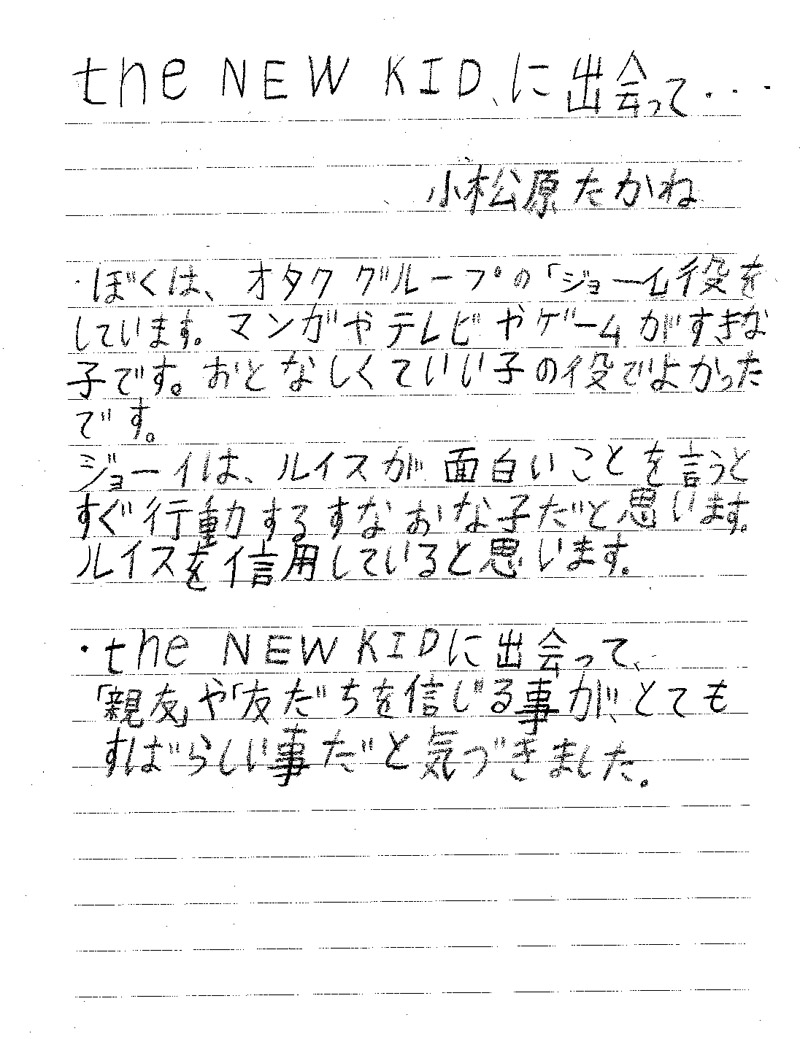 the NEW KID、に出会って・・・
小松原たかね
・ぼくは、オタクグループの「ジョーイ」役を
しています。マンガやテレビやゲームがすきな
子です。おとなしくていい子の役でよかった
です。
ジョーイは、ルイスが面白いことを言うと
すぐ行動するすなおな子だと思います。
ルイスを信用していると思います。
・the NEW KIDに出会って、
「親友」や「友だちを信じる事が、とても
すばらしい事だと気づきました。